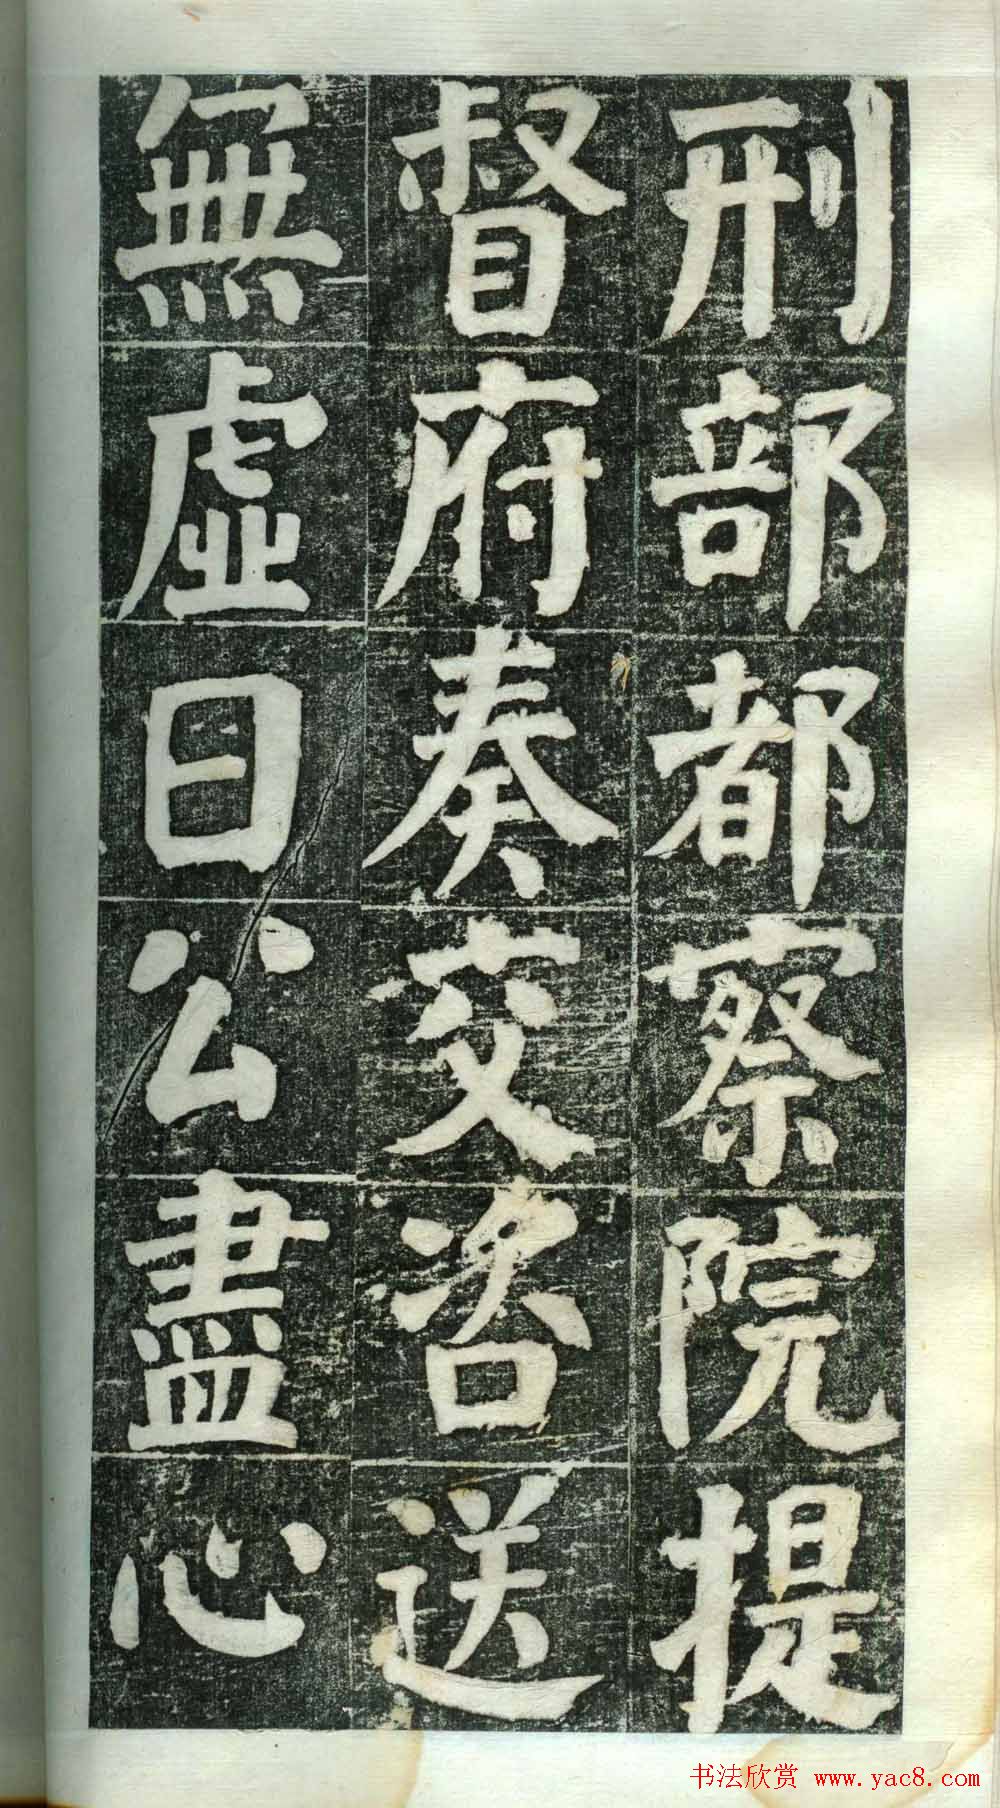 刑部都察院提
督府奏交咨送
無虛日公盡心
书法欣赏 www.yac8.com